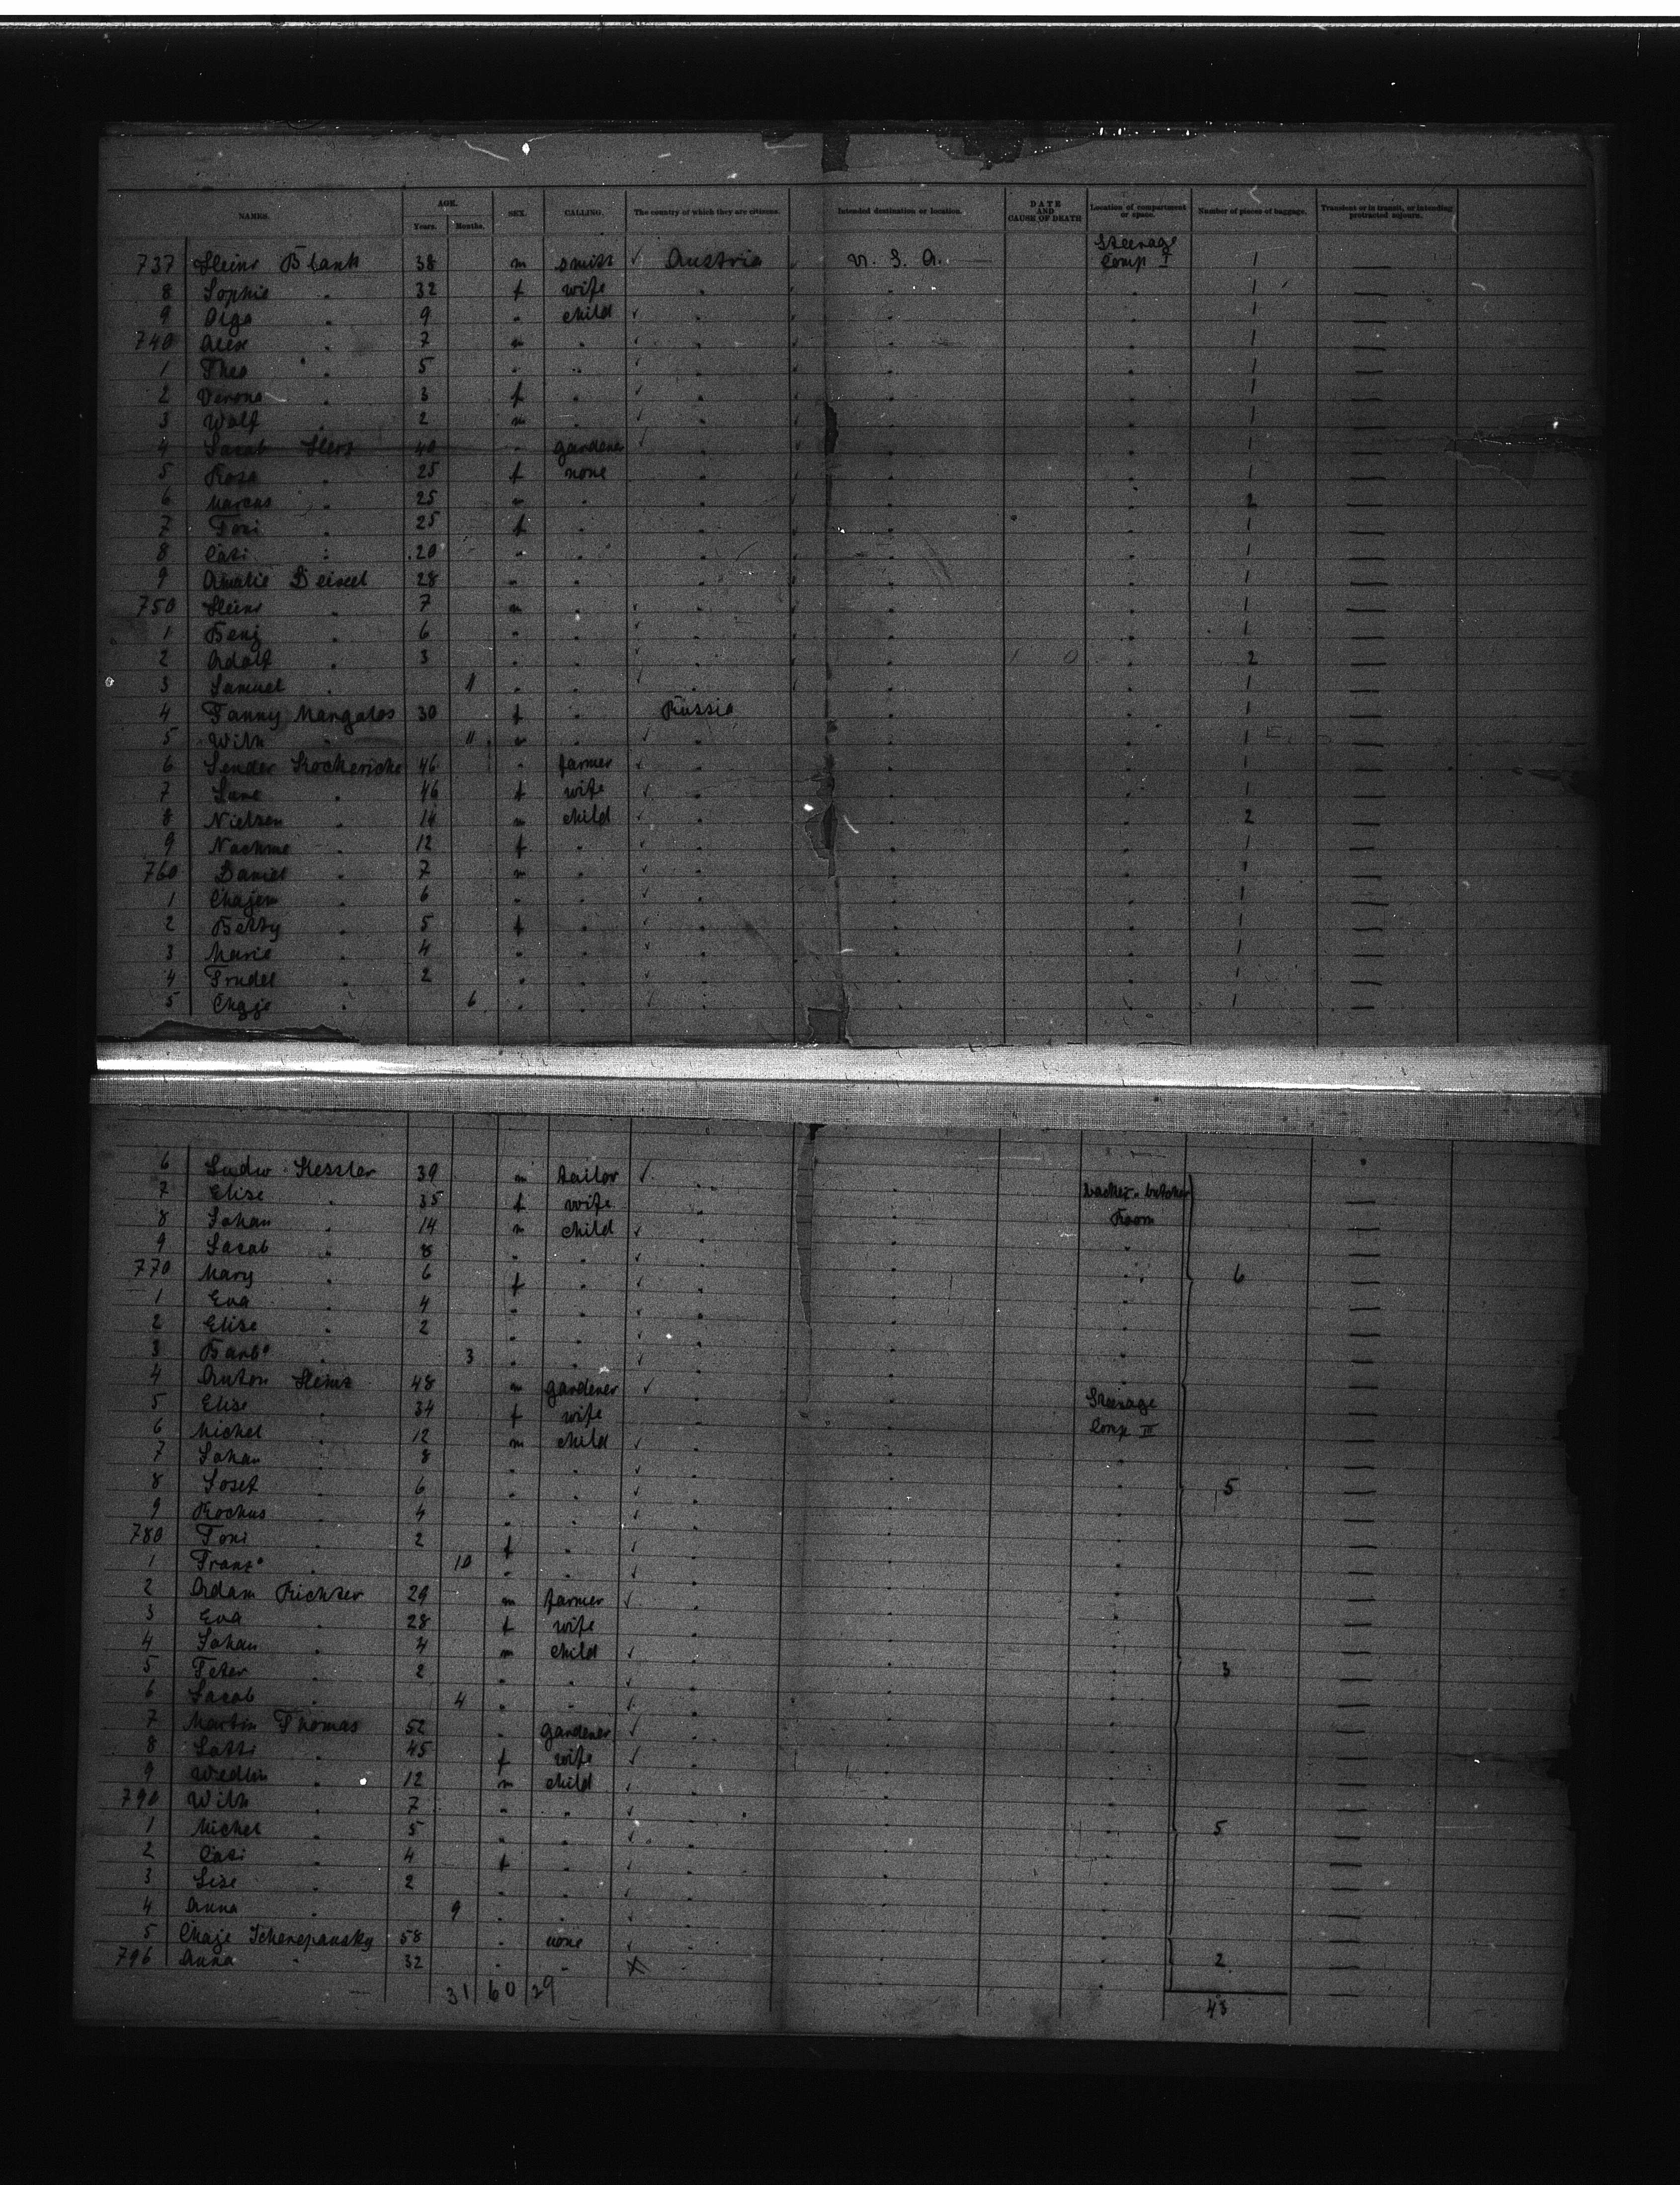 NAMES. AGE. Years. Months. SEX. CALLING. The country of which they are citizens. Intended destination or location. DATE AND CAUSE OF DEATH Location of compartment or space. Number of pieces of baggage. Transient or in transit, or intending protracted sojourn.
737 Heinr Blank 38 m smith ✓ Austria U. S. A. Steerage Comp I 1 —
8 Sophie " 32 f wife " " " 1 —
9 Olga " 9 " child ✓ " " " 1 —
740 Alex " 7 m " ✓ " " " 1 —
1 Theo " 5 " " ✓ " " " 1 —
2 Verona " 3 f " ✓ " " " 1 —
3 Wolf " 2 m " ✓ " " " 1 —
4 Jacob 40 " gardener ✓ " " " 1 —
5 Rosa " 25 f none " " " 1 —
6 Marcus " 25 m " " " " 2 —
7 Toni " 25 f " " " " 1 —
8 Cäti " 20 " " " " " 1 —
9 Amalie 28 " " " " " 1 —
750 Heinr " 7 m " ✓ " " " 1 —
1 Benj " 6 " " ✓ " " " 1 —
2 Adolf " 3 " " ✓ " " " 2 —
3 Samuel " 11 " " ✓ " " " 1 —
4 Fanny Margalos 30 f " Russia " " 1 —
5 Wilh " 11 m " ✓ " " " 1 —
6 Sender 46 " farmer ✓ " " " 1 —
7 " 46 f wife ✓ " " " 1 —
8 Nielsen " 14 m child ✓ " " " 2 —
9 Nachme " 12 f " ✓ " " " 1 —
760 Daniel " 7 m " ✓ " " " 1 —
1 Chajem " 6 " " ✓ " " " 1 —
2 Betty " 5 f " ✓ " " " 1 —
3 Marie " 4 " " ✓ " " " 1 —
4 Trudel " 2 " " ✓ " " " 1 —
5 Chaje " 6 " " ✓ " " " 1 —
6 Ludw Kessler 39 m tailor ✓ " "
7 Elise " 35 f wife " " Room —
8 Johan " 14 m child ✓ " " —
9 Jacob " 8 " " ✓ " " " —
770 Mary " 6 f " ✓ " " " 6 —
1 Eva " 4 " " ✓ " " " —
2 Elise " 2 " " ✓ " " " —
3 Barb " 3 " " ✓ " " " —
4 Anton Heinz 48 m gardener ✓ " " —
5 Elise " 34 f wife " " Steerage —
6 Michel " 12 m child ✓ " " Comp III —
7 Johan " 8 " " ✓ " " " —
8 Josef " 6 " " ✓ " " " 5 —
9 Rochus " 4 " " ✓ " " " —
780 Toni " 2 f " ✓ " " " —
1 Franz " 10 " " ✓ " " " —
2 Adam Richter 29 m farmer ✓ " " " —
3 Eva " 28 f wife " " " —
4 Johan " 4 m child ✓ " " " —
5 Peter " 2 " " ✓ " " " 3 —
6 Jacob " 4 " " ✓ " " " —
7 Martin Thomas 52 " gardener ✓ " " " —
8 " 45 f wife ✓ " " " —
9 12 m child ✓ " " " —
790 Wilh " 7 " " ✓ " " " —
1 Michel " 5 " " ✓ " " " 5 —
2 Cäti " 4 f " ✓ " " " —
3 Lise " 2 " " ✓ " " " —
4 Anna " 9 " " ✓ " " " —
5 Chaje Tcherepansky 58 " none ✓ " " " —
796 Anna " 32 " " X " " " 2 —
31 60 29 48